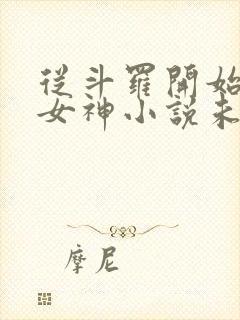 從斗羅開始
女神小說未
摩尼